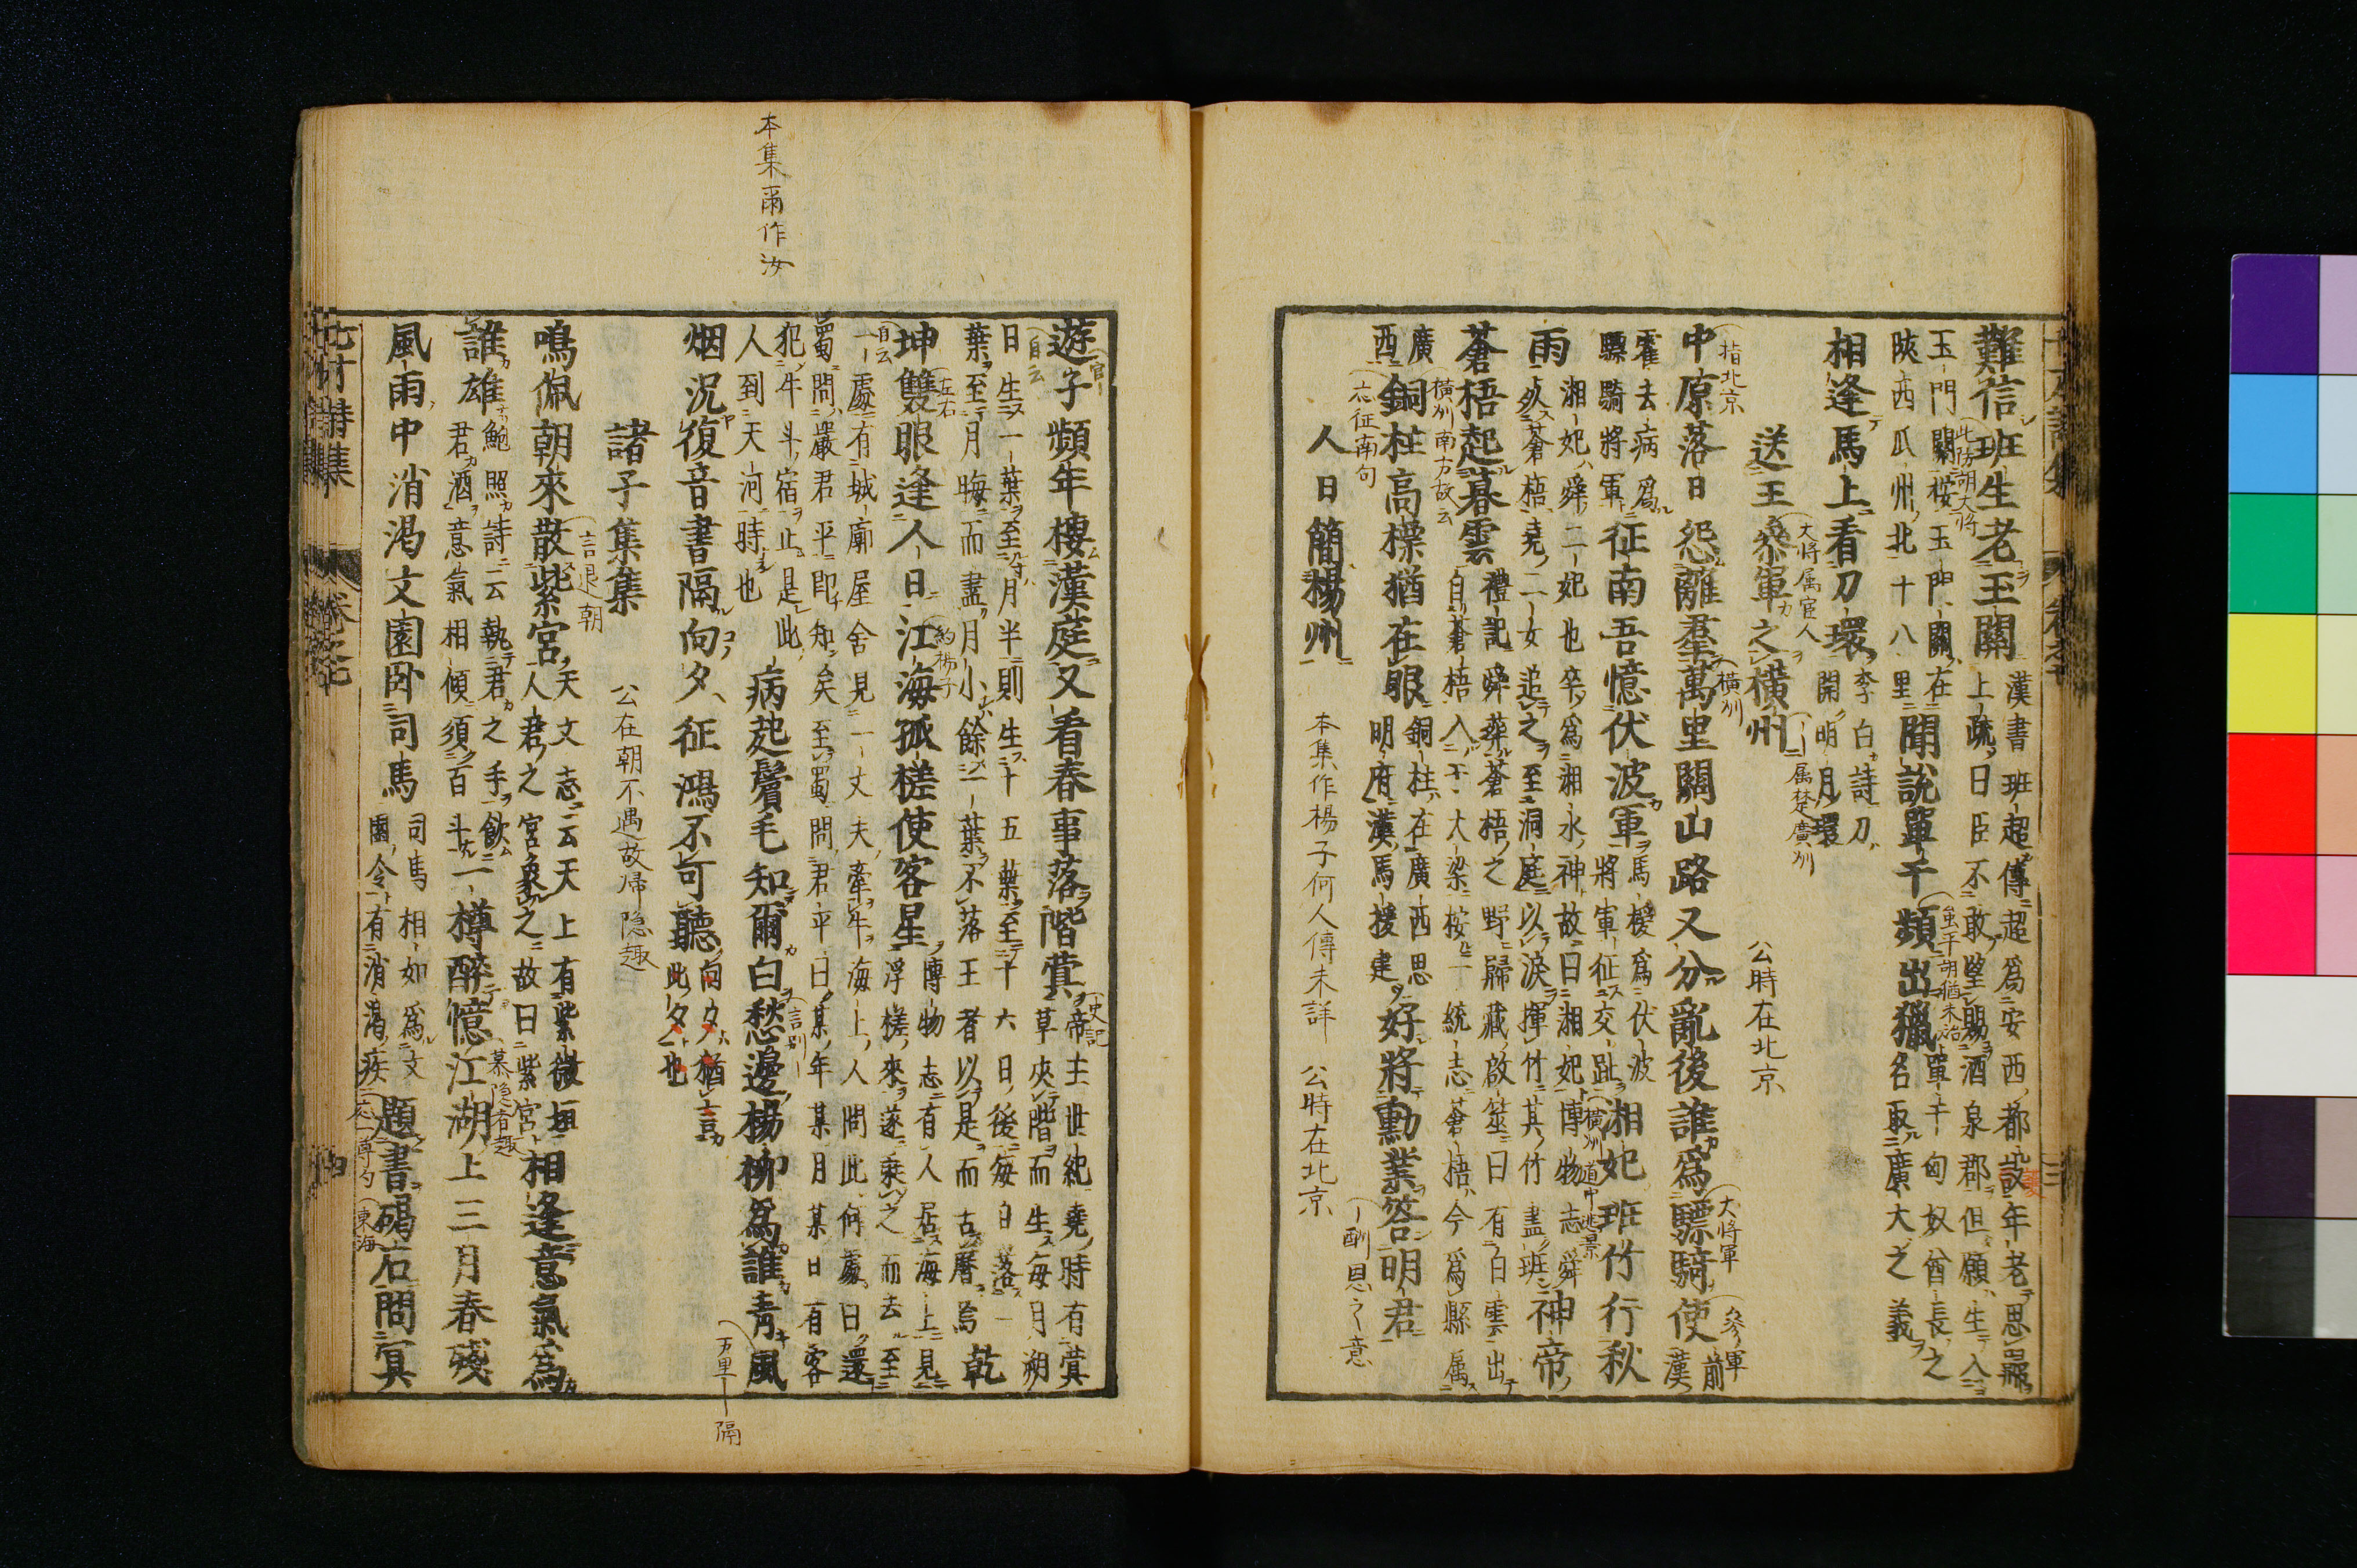 難信班生老玉關
漢書班超傳超爲安西都護年老思歸
上疏曰臣不敢望賜酒泉郡但願生入
玉門關桉玉門關在
陜西瓜州北十八里
聞說單于頻出獵
單于匈奴酋長之
名取廣大之義
相逢馬上看刀環
李白詩刀
開明月環
送王參軍之橫州
公時在北京
中原落日怨離羣萬里關山路又分亂後誰爲驃騎使
前漢
霍去病爲
驃騎將軍
征南吾憶伏波軍
馬援爲伏波
將軍征交趾
湘妃班竹行秋
雨
湘妃舜二妃也卒爲湘水神故曰湘妃博物志舜
死蒼梧堯二女追之至洞庭以淚揮竹其竹盡班
神帝
蒼梧起暮雲
禮記舜葬蒼梧之野歸藏啟筮曰有白雲出
自蒼梧入于大梁桉一統志蒼梧今爲縣屬
廣
西
銅柱高標猶在眼
銅柱在廣西思
明府漢馬援建
好將勳業答明君
人日簡楊州
本集作楊子何人傳未詳
公時在北京
遊子頻年樓漢庭又看春事落階蓂
帝王世紀堯時有蓂
草夾階而生每月朔
日生一葉至月半則生十五葉至十六日後每日落一
葉至月晦而盡月小餘一葉不落王者以是而占曆焉
乾
坤雙眼逢人日江海孤槎使客星
博物志有人居海上見
浮槎來遂乘之而去至
一處有城廓屋舍見一丈夫牽牛海上人問此何處曰還
蜀問嚴君平即知矣至蜀問君平曰某年某月某日有客
犯牛斗宿止是此
人到天河時也
病起鬢毛知爾白愁邊楊柳爲誰青風
烟況復音書隔向夕征鴻不可聽
向夕猶言
此夕也
諸子集集
公在朝不遇故帰隐趣
鳴佩朝來散紫宮
天文志云天上有紫微垣
人君之宮象之故曰紫宮
相逢意氣爲
誰雄
鮑照詩云執君之手飲
君酒意氣相傾須百斗
一樽醉憶江湖上三月春殘
風雨中消渴文園卧司馬
司馬相如爲文
園令有消渴疾
題書碣石問冥
本集爾作汝